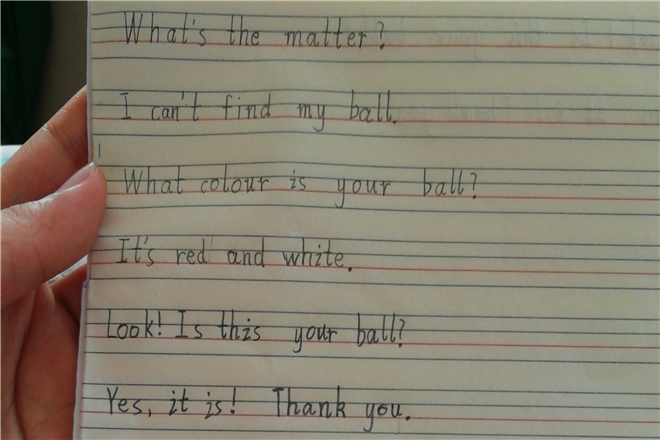 What's the matter?
I can't find my ball.
What colour is your ball?
It's red and white.
Look! Is this your ball?
Yes, it is! Thank you.